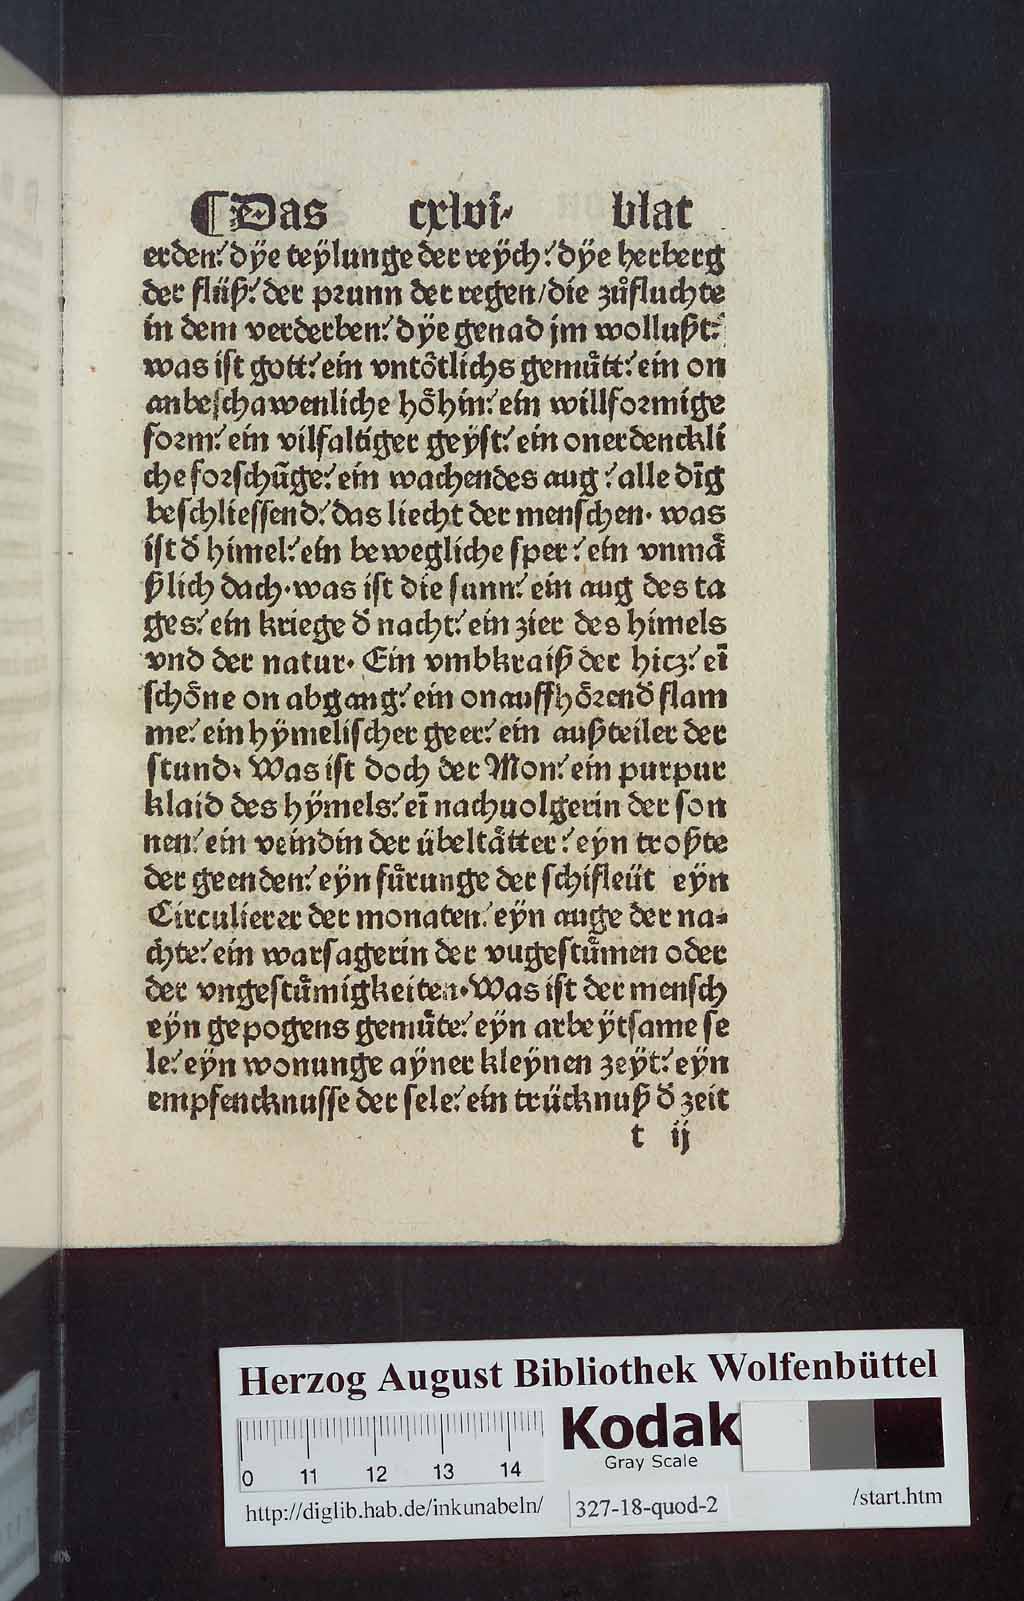 ¶Das cxlvi· blat
erden:́ dÿe teÿlunge der reÿch:́ dÿe herberg
der flüß:́ der prunn der regen/die zůfluchte
in dem verderben:́ dÿe genad jm wollußt:́
was ist gott:́ ein vntötlichs gemütt:́ ein on
anbeschawenliche höhin:́ ein willformige
form:́ ein vilfaltiger geÿst:́ ein onerdenckli
che forschūge:́ ein wachendes aug:́ alle dīg
beschliessend:́ das liecht der menschen· was
ist d̄ himel:́ ein bewegliche sper:́ ein vnmä
ßlich dach·was ist die sunn:́ ein aug des ta
ges:́ ein kriege d̄ nacht:́ ein zier des himels
vnd der natur· Ein vmbkraiß der hicz:́ eī
schöne on abgang:́ ein onauffhörend̄ flam
me:́ ein hÿmelischer geer:́ ein außteiler der
stund· Was ist doch der Mon:́ ein purpur
klaid des hÿmels:́ eī nachuolgerin der son
nen:́ ein veindin der übeltätter:́ eÿn troßte
der geenden:́ eÿn fürunge der schifleüt eÿn
Circulierer der monaten:́ eÿn auge der na=
chte:́ ein warsagerin der vugestümen oder
der vngestümigkeiten·Was ist der mensch
eÿn gepogens gemüte:́ eÿn arbeÿtsame se
le:́ eÿn wonunge aÿner kleÿnen zeÿt:́ eÿn
empfencknusse der sele:́ ein trücknuß d̄ zeit
t ij
Herzog August Bibliothek Wolfenbüttel
0 11 12 13 14
Kodak
Gray Scale
http://diglib.hab.de/inkunabeln/ 327-18-quod-2 /start.htm